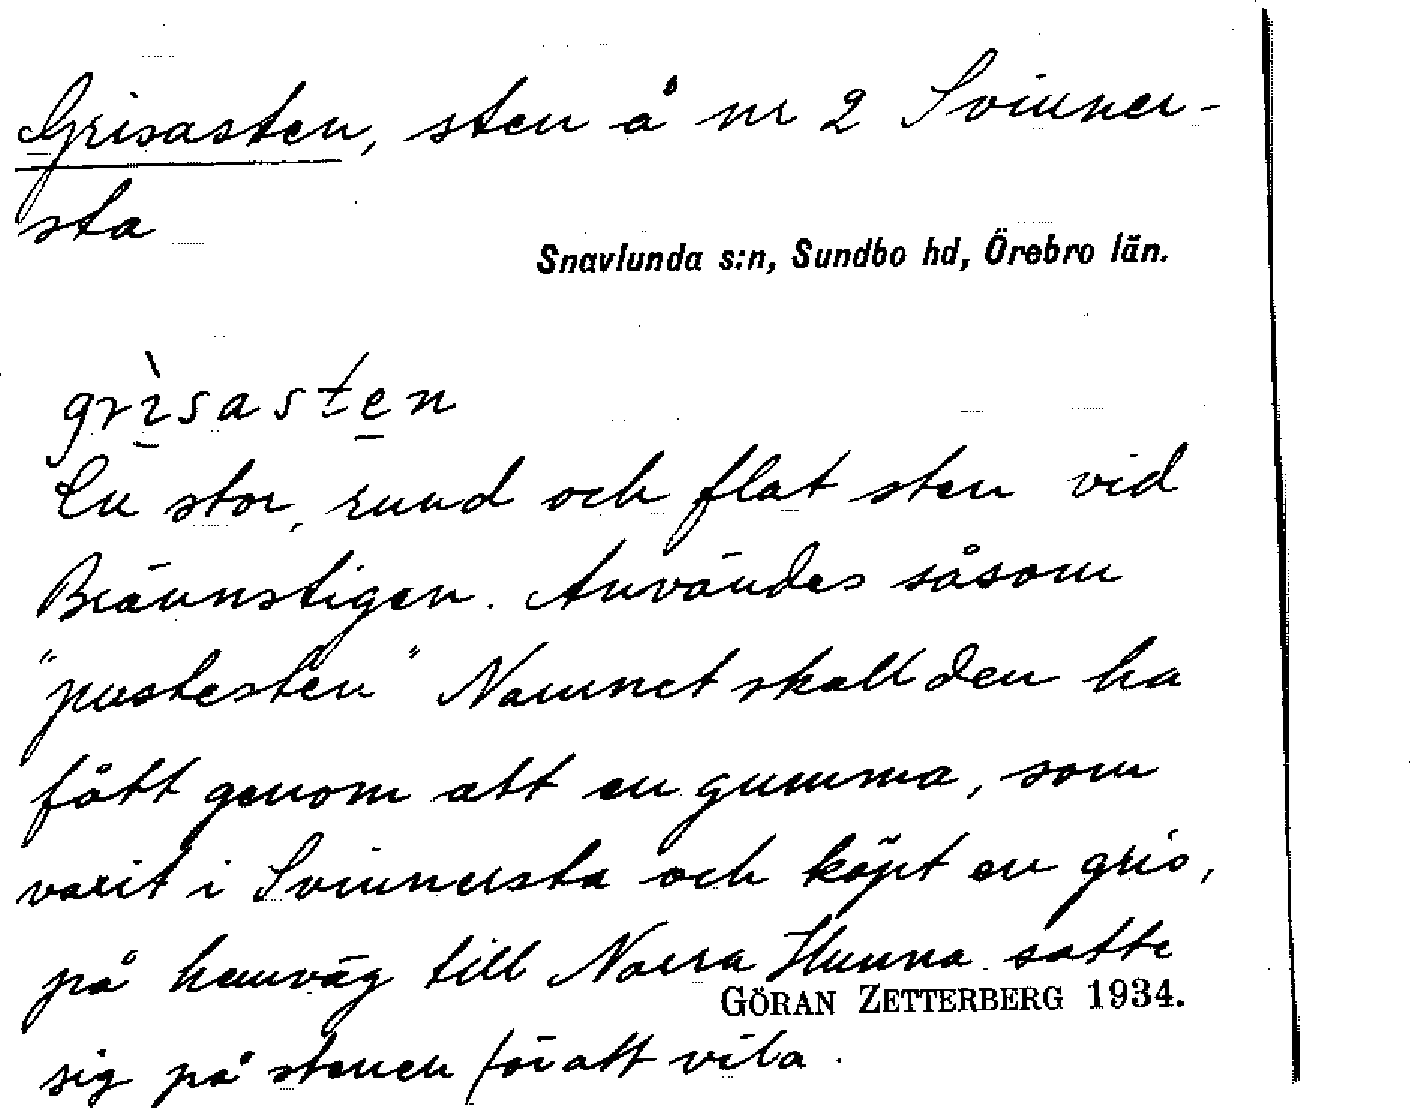 Grisasten, sten å nr 2 Svinner-
sta
Snavlunda s:n, Sundbo hd, Örebro län.
grìsasten
En stor, rund och flat sten vid
Brännstigen. Användes såsom
"pustesten" Namnet skall den ha
fått genom att en gumma, som
varit i Svinnersta och köpt en gris,
på hemväg till Norra Hunna satte
GÖRAN ZETTERBERG 1934.
sig på stenen för att vila.